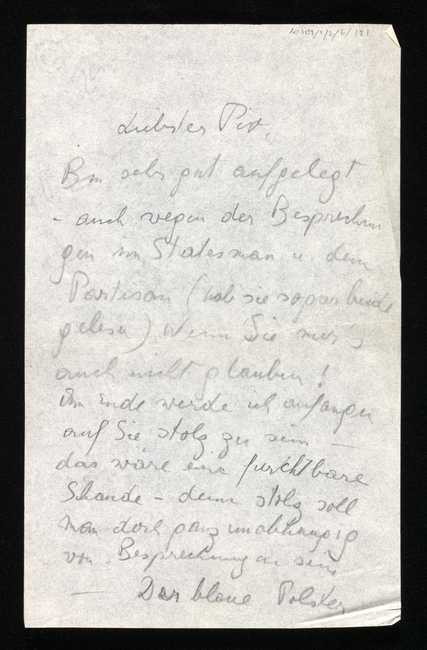 Liebster Pix,
Bin sehr gut aufgelegt
- auch wegen der Besprechun
gen im Statesman u. dem
Partisan (hab sie sogar beide
gelesen) wenn Sie mir's
auch nicht glauben!
Am Ende werde ich anfangen
auf Sie stolz zu sein -
das wäre eine furchtbare
Schande - denn stolz soll
man doch ganz unabhängig
von Besprechungen sein
- Der blaue Polster